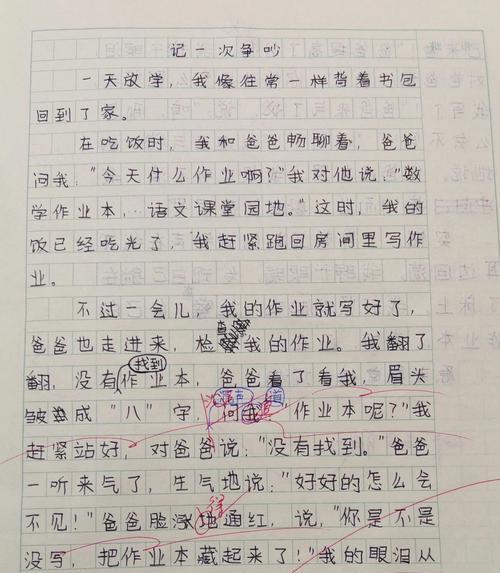 记一次争吵
一天放学，我像往常一样背着书包
回到了家。
在吃饭时，我和爸爸畅聊着，爸爸
问我："今天什么作业啊？"我对他说："数
学作业本、语文课堂园地。"这时，我的
饭已经吃光了，我赶紧跑回房间里写作
业。
不过一会儿，我的作业就写好了，
爸爸也走进来，检查我的作业。我翻了
翻，没有找到作业本，爸爸看了看我，眉头
皱成"八"字，沉声问道："作业本呢？"我
赶紧站好，对爸爸说："没有找到。"爸爸
一听来气了，生气地说："好好的怎么会
不见！"爸爸脸涨地通红，说，"你是不是
没写，把作业本藏起来了！"我的眼泪从